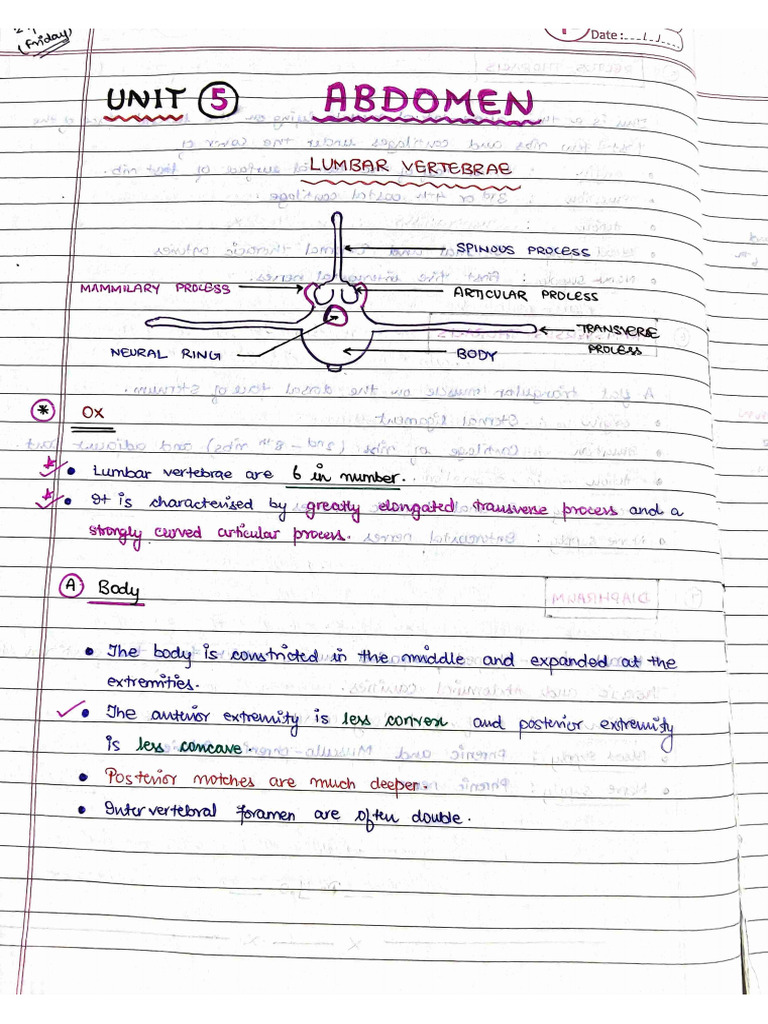 (Friday)
Date :
UNIT 5 ABDOMEN
LUMBAR VERTEBRAE
SPINOUS PROCESS
MAMMILARY PROCESS
ARTICULAR PROCESS
TRANSVERSE
PROCESS
NEURAL RING
BODY
* OX
• Lumbar vertebrae are 6 in number.
• It is characterised by greatly elongated transverse process and a
strongly curved articular process.
A Body
• The body is constricted in the middle and expanded at the
extremities.
• The anterior extremity is less convex and posterior extremity
is less concave.
• Posterior notches are much deeper.
• Inter vertebral foramen are often double.